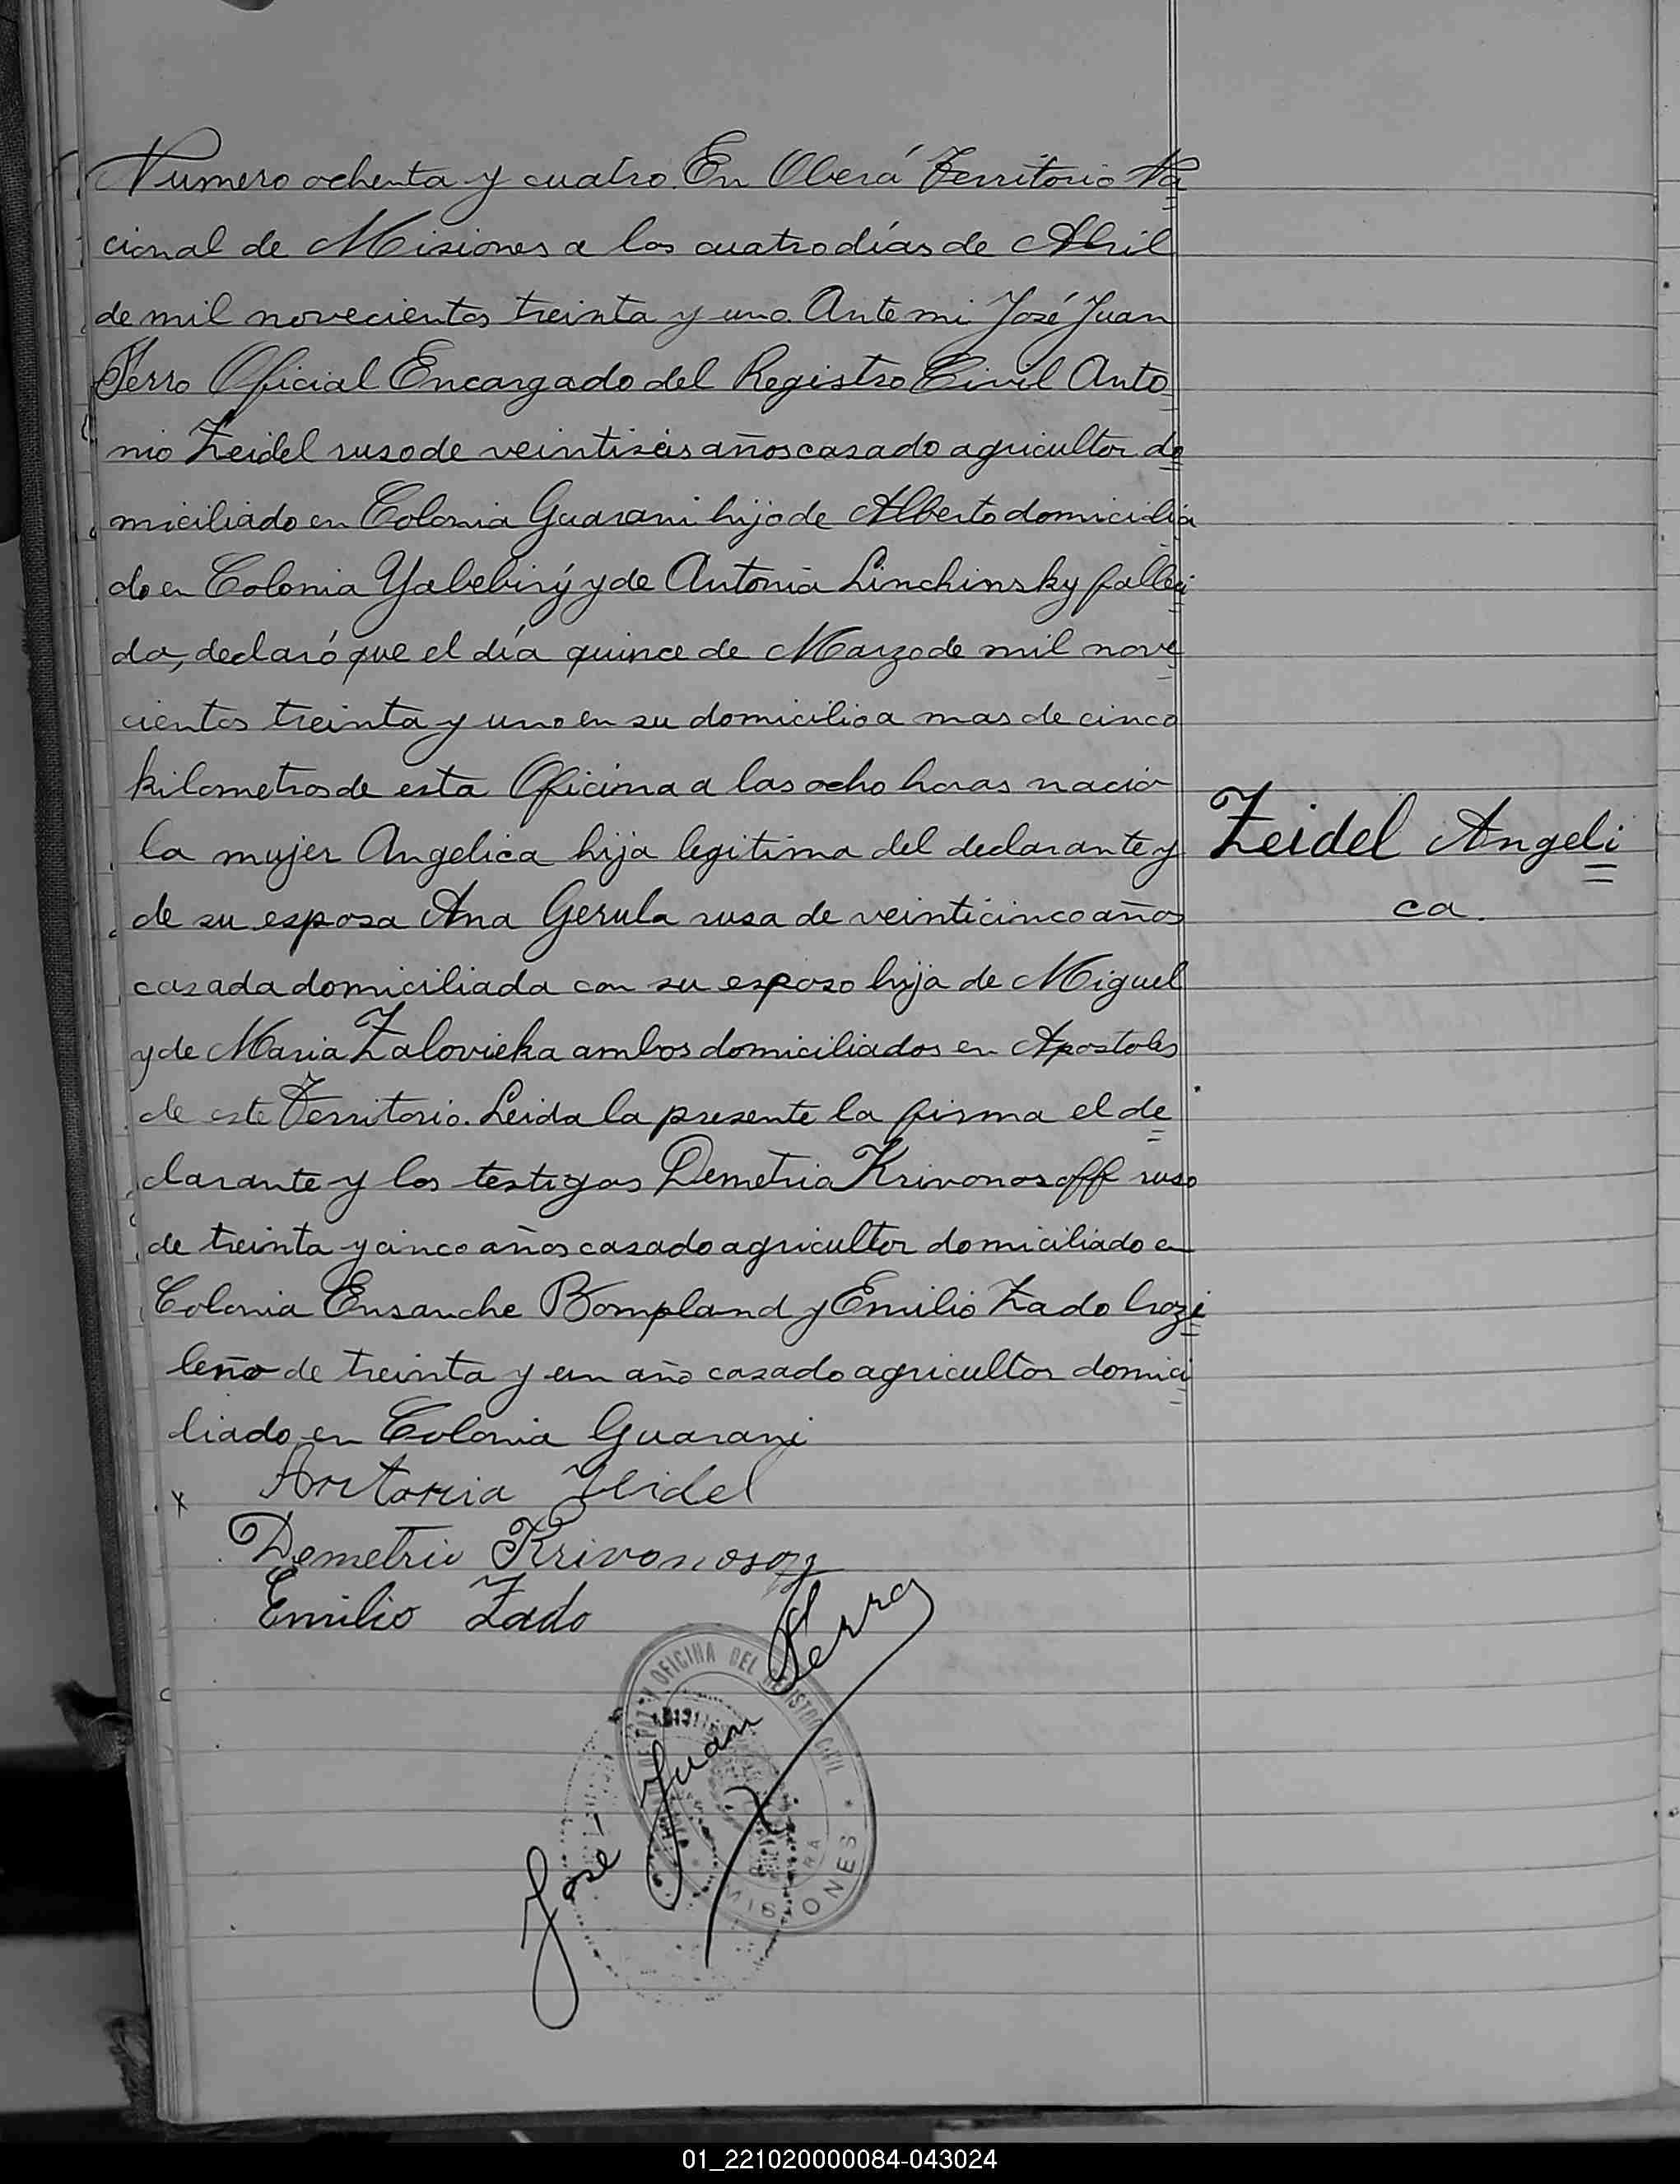 Numero ochenta y cuatro. En Oberá Territorio Na
cional de Misiones a los cuatro días de Abril
de mil novecientos treinta y uno. Ante mi José Juan
Ferro Oficial Encargado del Registro Civil Anto
nio Zeidel ruso de veintiseis años casado agricultor do
miciliado en Colonia Guarani hijo de Alberto domicilia
do en Colonia Yabebirý y de Antonia Linchinsky falleci
da, declaró que el día quince de Marzo de mil nove
cientos treinta y uno en su domicilio a mas de cinco
kilometros de esta Oficina a las ocho horas nacio
la mujer Angelica hija legitima del declarante y
Zeidel Angeli
ca.
de su esposa Ana Gerula rusa de veinticinco años
casada domiciliada con su esposo hija de Miguel
y de Maria Zalovieka ambos domiciliados en Apostoles
de este Territorio. Leida la presente la firma el de
clarante y los testigos Demetrio Krivonosoff ruso
de treinta y cinco años casado agricultor domiciliado en
Colonia Ensanche Bompland y Emilio Zado brazi
leño de treinta y un año casado agricultor domici
liado en Colonia Guarani
x Antonia Zeidel
Demetrio Krivonosoff
Emilio Zado
José Juan Ferro
OFICINA DEL REGISTRO CIVIL
MISIONES
01_221020000084-043024